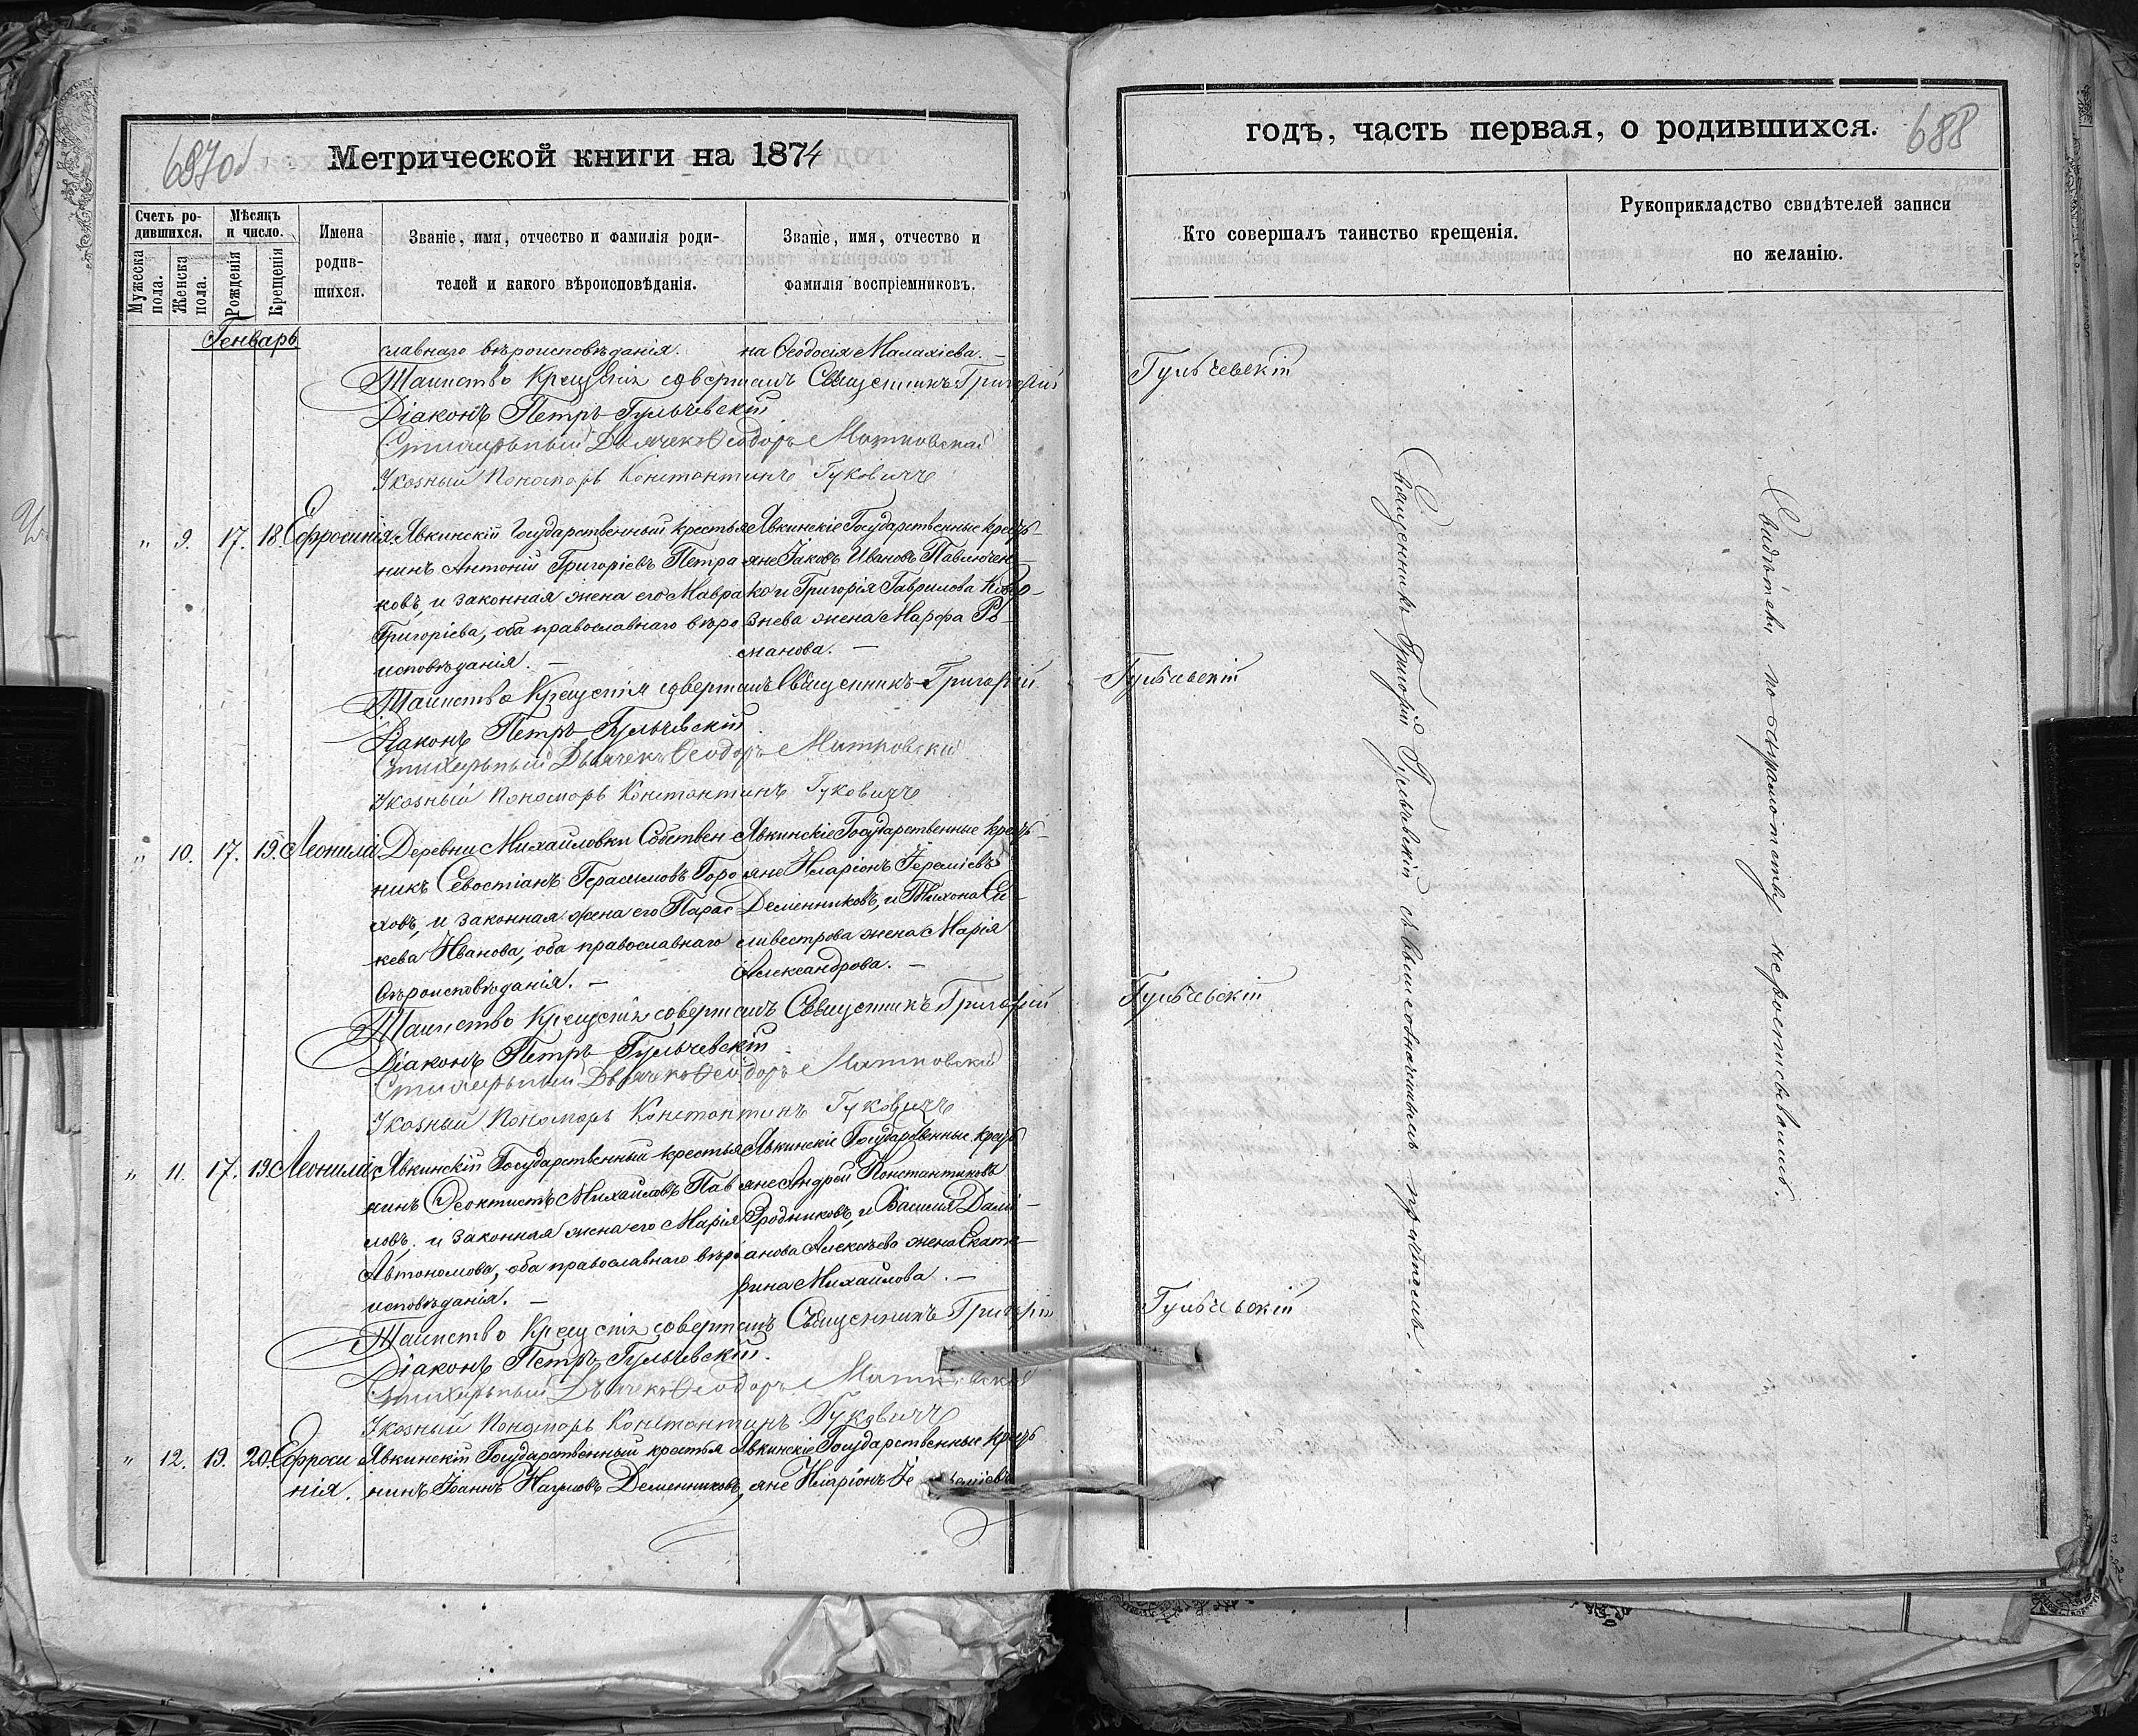 687об
Метрической книги на 1874
Счетъ ро-
дившихся.
Мужеска
пола.
Женска
пола.
Мѣсяцъ
и число.
Рожденія
Крещенія
Имена
родив-
шихся.
Званіе, имя, отчество и фамилія роди-
телей и какого вѣроисповѣданія.
Званіе, имя, отчество и
фамилія воспріемниковъ.
Генварь
славнаго вѣроисповѣданія.
на Ѳеодосія Малахіева. —
Таинство Крещенія совершалъ Священникъ Григорій
Діаконъ Петръ Гульчевскій
Стихарный Дьячекъ Ѳеодоръ Митковскій
Указный Пономарь Константинъ Гуковичъ
„ 9. 17. 18. Ефросинія.
Явкинскій Государственный крестья
нинъ Антоній Григоріевъ Петра
ковъ, и законная жена его Мавра
Григоріева, оба православнаго вѣро
исповѣданія. —
Явкинскіе Государственные кресть-
яне Іаковъ Ивановъ Павлючен-
ко и Григорія Гаврилова
знева жена Марфа Ро-
манова. —
Таинство Крещенія совершалъ Священникъ Григорій
Діаконъ Петръ Гульчевскій
Стихарный Дьячекъ Ѳеодоръ Митковскій
Указный Пономарь Константинъ Гуковичъ
„ 10. 17. 19. Леонила
Деревни Михайловки Собствен
никъ Севостіанъ Герасимовъ Горо
ховъ, и законная жена его Парас
кева Иванова, оба православнаго
вѣроисповѣданія. —
Явкинскіе Государственные кресть-
яне Иларіонъ Іереміевъ
Деменниковъ, и Тихона Си-
ливестрова жена Марія
Александрова. —
Таинство Крещенія совершалъ Священникъ Григорій
Діаконъ Петръ Гульчевскій
Стихарный Дьячекъ Ѳеодоръ Митковскій
Указный Пономарь Константинъ Гуковичъ
„ 11. 17. 19. Леонила
Явкинскій Государственный крестья
нинъ Ѳеоктистъ Михайловъ Пав
ловъ. и законная жена его Марія
Автономова, оба православнаго вѣро
исповѣданія. —
Явкинскіе Государственные кресть
яне Андрей Константиновъ
Бродниковъ, и Василія
анова Алексѣева жена Екате-
рина Михайлова. —
Таинство Крещенія совершалъ Священникъ Григорій
Діаконъ Петръ Гульчевскій.
Стихарный Дьячекъ Ѳеодоръ Митковскій
Указный Пономарь Константинъ Гуковичъ
„ 12. 19. 20. Ефроси
нія.
Явкинскій Государственный крестья
нинъ Іоаннъ Наумовъ Деменниковъ,
Явкинскіе Государственные кресть
яне Иларіонъ Іереміевъ
годъ, часть первая, о родившихся.
688
Кто совершалъ таинство крещенія.
Рукоприкладство свидѣтелей записи
по желанію.
Гульчевскій
Гульчевскій
Гульчевскій
Гульчевскій
Священникъ Григорій Гульчевскій съ вышеозначеннымъ причтомъ.
Свидѣтели по безграмотству нерасписывались.